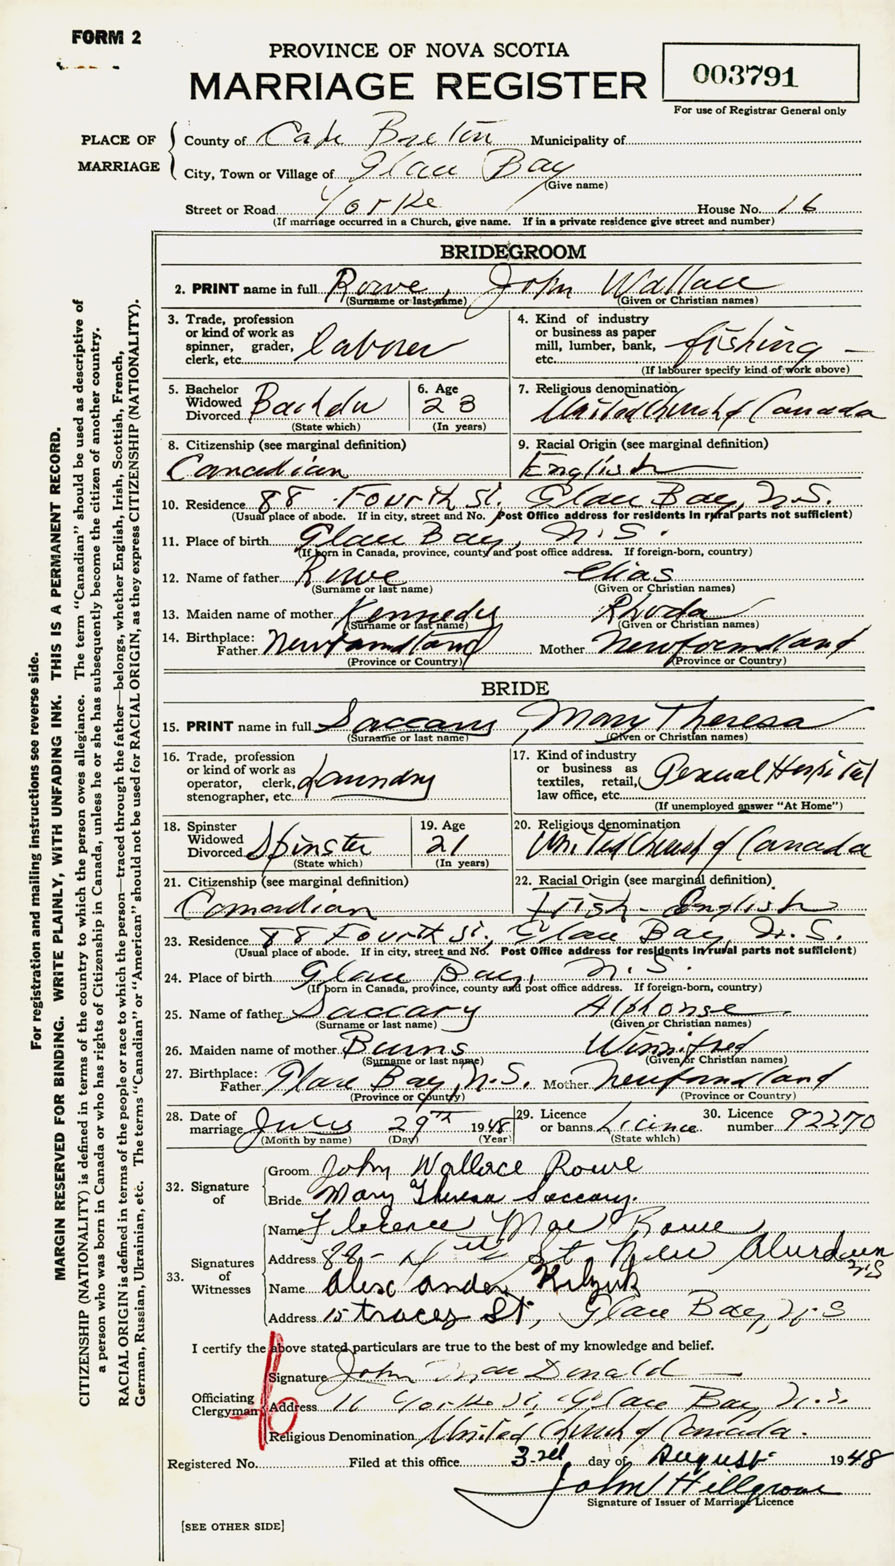 FORM 2
PROVINCE OF NOVA SCOTIA
MARRIAGE REGISTER
003791
For use of Registrar General only
PLACE OF MARRIAGE
County of Cape Breton Municipality of
City, Town or Village of Glace Bay
(Give name)
Street or Road Yorke House No. 16
(If marriage occurred in a Church, give name. If in a private residence give street and number)
BRIDEGROOM
2. PRINT name in full Rowe, John Wallace
(Surname or last name) (Given or Christian names)
3. Trade, profession or kind of work as spinner, grader, clerk, etc. laborer
4. Kind of industry or business as paper mill, lumber, bank, etc. fishing
(If labourer specify kind of work above)
5. Bachelor Widowed Divorced Bachelor
(State which)
6. Age 23
(In years)
7. Religious denomination United Church of Canada
8. Citizenship (see marginal definition) Canadian
9. Racial Origin (see marginal definition) English
10. Residence 88 Fourth St. Glace Bay, N.S.
(Usual place of abode. If in city, street and No. Post Office address for residents in rural parts not sufficient)
11. Place of birth Glace Bay, N.S.
(If born in Canada, province, county and post office address. If foreign-born, country)
12. Name of father Rowe Elias
(Surname or last name) (Given or Christian names)
13. Maiden name of mother Kennedy Rhoda
(Surname or last name) (Given or Christian names)
14. Birthplace: Father Newfoundland Mother Newfoundland
(Province or Country) (Province or Country)
BRIDE
15. PRINT name in full Saccary Mary Theresa
(Surname or last name) (Given or Christian names)
16. Trade, profession or kind of work as operator, clerk, stenographer, etc. Laundry
17. Kind of industry or business as textiles, retail, law office, etc. General Hospital
(If unemployed answer "At Home")
18. Spinster Widowed Divorced Spinster
(State which)
19. Age 21
(In years)
20. Religious denomination United Church of Canada
21. Citizenship (see marginal definition) Canadian
22. Racial Origin (see marginal definition) Irish - English
23. Residence 88 Fourth St, Glace Bay, N.S.
(Usual place of abode. If in city, street and No. Post Office address for residents in rural parts not sufficient)
24. Place of birth Glace Bay, N.S.
(If born in Canada, province, county and post office address. If foreign-born, country)
25. Name of father Saccary Alphonse
(Surname or last name) (Given or Christian names)
26. Maiden name of mother Burns Winnifred
(Surname or last name) (Given or Christian names)
27. Birthplace: Father Glace Bay, N.S. Mother Newfoundland
(Province or Country) (Province or Country)
28. Date of marriage July 29th 1948
(Month by name) (Day) (Year)
29. Licence or banns Licence
(State which)
30. Licence number 92270
32. Signature of
Groom John Wallace Rowe
Bride Mary Theresa Saccary.
33. Signatures of Witnesses
Name Florence Mae Rowe
Address 88 - 4th St New Aberdeen N.S
Name Alexander
Address 15 tracey St, Glace Bay, N.S
I certify the above stated particulars are true to the best of my knowledge and belief.
Officiating Clergyman
Signature John MacDonald
Address 16 Yorke St, Glace Bay, N.S.
Religious Denomination United Church of Canada.
Registered No. Filed at this office 3rd day of August 1948
John Hillgrove
Signature of Issuer of Marriage Licence
[SEE OTHER SIDE]
For registration and mailing instructions see reverse side.
MARGIN RESERVED FOR BINDING. WRITE PLAINLY, WITH UNFADING INK. THIS IS A PERMANENT RECORD.
CITIZENSHIP (NATIONALITY) is defined in terms of the country to which the person owes allegiance. The term "Canadian" should be used as descriptive of
a person who was born in Canada or who has rights of Citizenship in Canada, unless he or she has subsequently become the citizen of another country.
RACIAL ORIGIN is defined in terms of the people or race to which the person—traced through the father—belongs, whether English, Irish, Scottish, French,
German, Russian, Ukrainian, etc. The terms "Canadian" or "American" should not be used for RACIAL ORIGIN, as they express CITIZENSHIP (NATIONALITY).